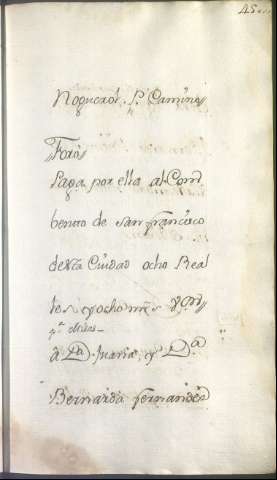 45
Noguerol. P. Camino
Foro
Paga por ella al Com
bento de San francisco
desta Ciudad ocho Real
les y ocho mrs von
a Da. Maria y Da
Bernarda fernandes